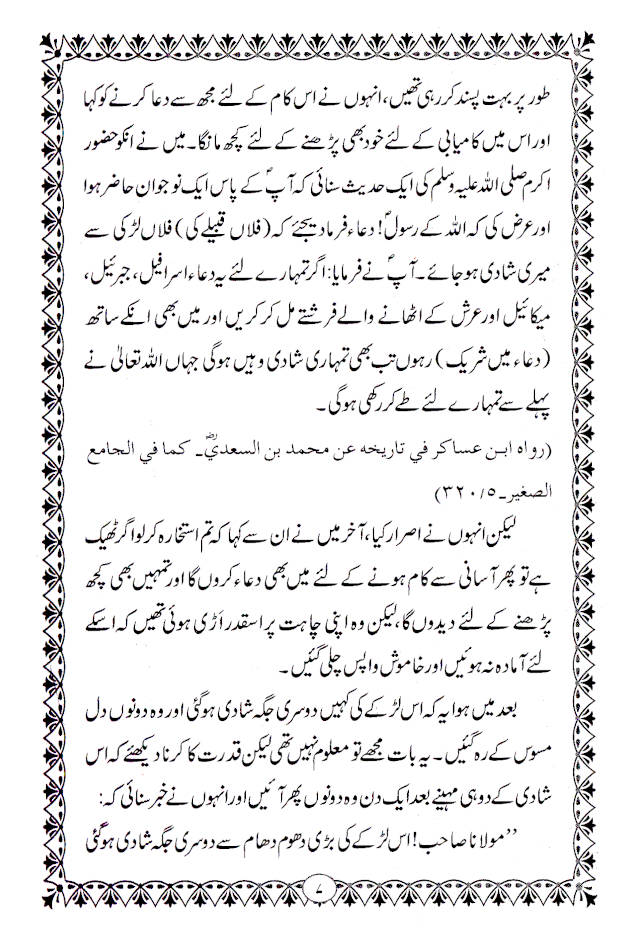 طور پر بہت پسند کر رہی تھیں، انہوں نے اس کام کے لئے مجھ سے دعا کرنے کو کہا
اور اس میں کامیابی کے لئے خود بھی پڑھنے کے لئے کچھ مانگا۔ میں نے انکو حضور
اکرم صلی اللہ علیہ وسلم کی ایک حدیث سنائی کہ آپؐ کے پاس ایک نوجوان حاضر ہوا
اور عرض کی کہ اللہ کے رسولؐ! دعاء فرما دیجئے کہ (فلاں قبیلے کی) فلاں لڑکی سے
میری شادی ہو جائے۔ آپؐ نے فرمایا: اگر تمہارے لئے یہ دعاء اسرافیل، جبرئیل،
میکائیل اور عرش کے اٹھانے والے فرشتے مل کر کریں اور میں بھی انکے ساتھ
(دعاء میں شریک) رہوں تب بھی تمہاری شادی وہیں ہوگی جہاں اللہ تعالیٰ نے
پہلے سے تمہارے لئے طے کر رکھی ہوگی۔
(رواہ ابن عساکر في تاریخہ عن محمد بن السعديؓ۔ کما في الجامع
الصغیر۔ ۳۲۰/۵)
لیکن انہوں نے اصرار کیا، آخر میں نے ان سے کہا کہ تم استخارہ کر لو اگر ٹھیک
ہے تو پھر آسانی سے کام ہونے کے لئے میں بھی دعاء کروں گا اور تمہیں بھی کچھ
پڑھنے کے لئے دیدوں گا، لیکن وہ اپنی چاہت پر اسقدر اَڑی ہوئی تھیں کہ اسکے
لئے آمادہ نہ ہوئیں اور خاموش واپس چلی گئیں۔
بعد میں ہوا یہ کہ اس لڑکے کی کہیں دوسری جگہ شادی ہوگئی اور وہ دونوں دل
مسوس کے رہ گئیں۔ یہ بات مجھے تو معلوم نہیں تھی لیکن قدرت کا کرنا دیکھئے کہ اس
شادی کے دو ہی مہینے بعد ایک دن وہ دونوں پھر آئیں اور انہوں نے خبر سنائی کہ:
”مولانا صاحب! اس لڑکے کی بڑی دھوم دھام سے دوسری جگہ شادی ہوگئی
۷